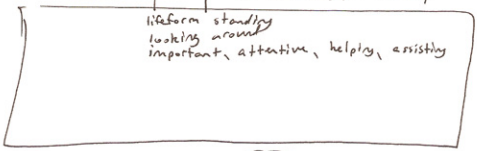 lifeform standing
looking around
important, attentive, helping, assisting